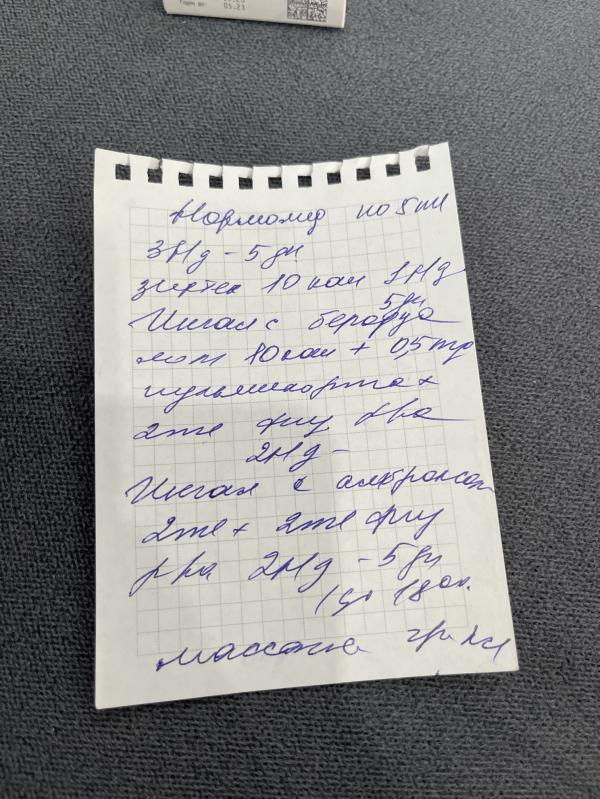 Годен до:
05.23
Нормомед по 5 мл
3Нд - 5 дн
зиртек 10 кап 1Нд
5 дн
Ингал с беродуа
лом 10 кап + 0,5 мг
пульмикорта +
2 мл физ р-ра
2Нд -
Ингал с амброксол
2 мл + 2 мл физ
р-ра 2Нд - 5 дн
(до 18 00.
массаж гр. кл